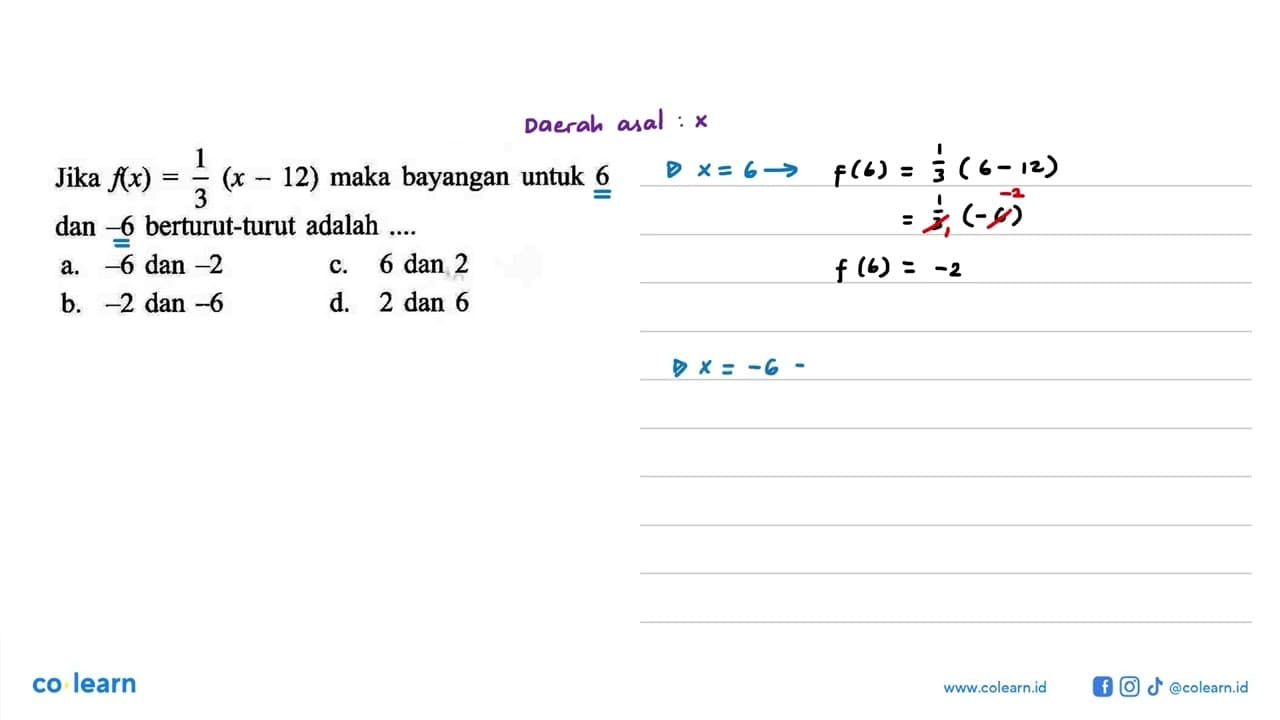 Daerah asal : x
Jika f(x) = 1/3 (x – 12) maka bayangan untuk 6
dan –6 berturut-turut adalah ....
a. –6 dan –2
c. 6 dan 2
b. –2 dan –6
d. 2 dan 6
▷ x = 6 → f(6) = 1/3 (6 - 12)
= 1/3 1 (-6) -2
f(6) = -2
▷ x = -6 -
co learn
www.colearn.id
@colearn.id